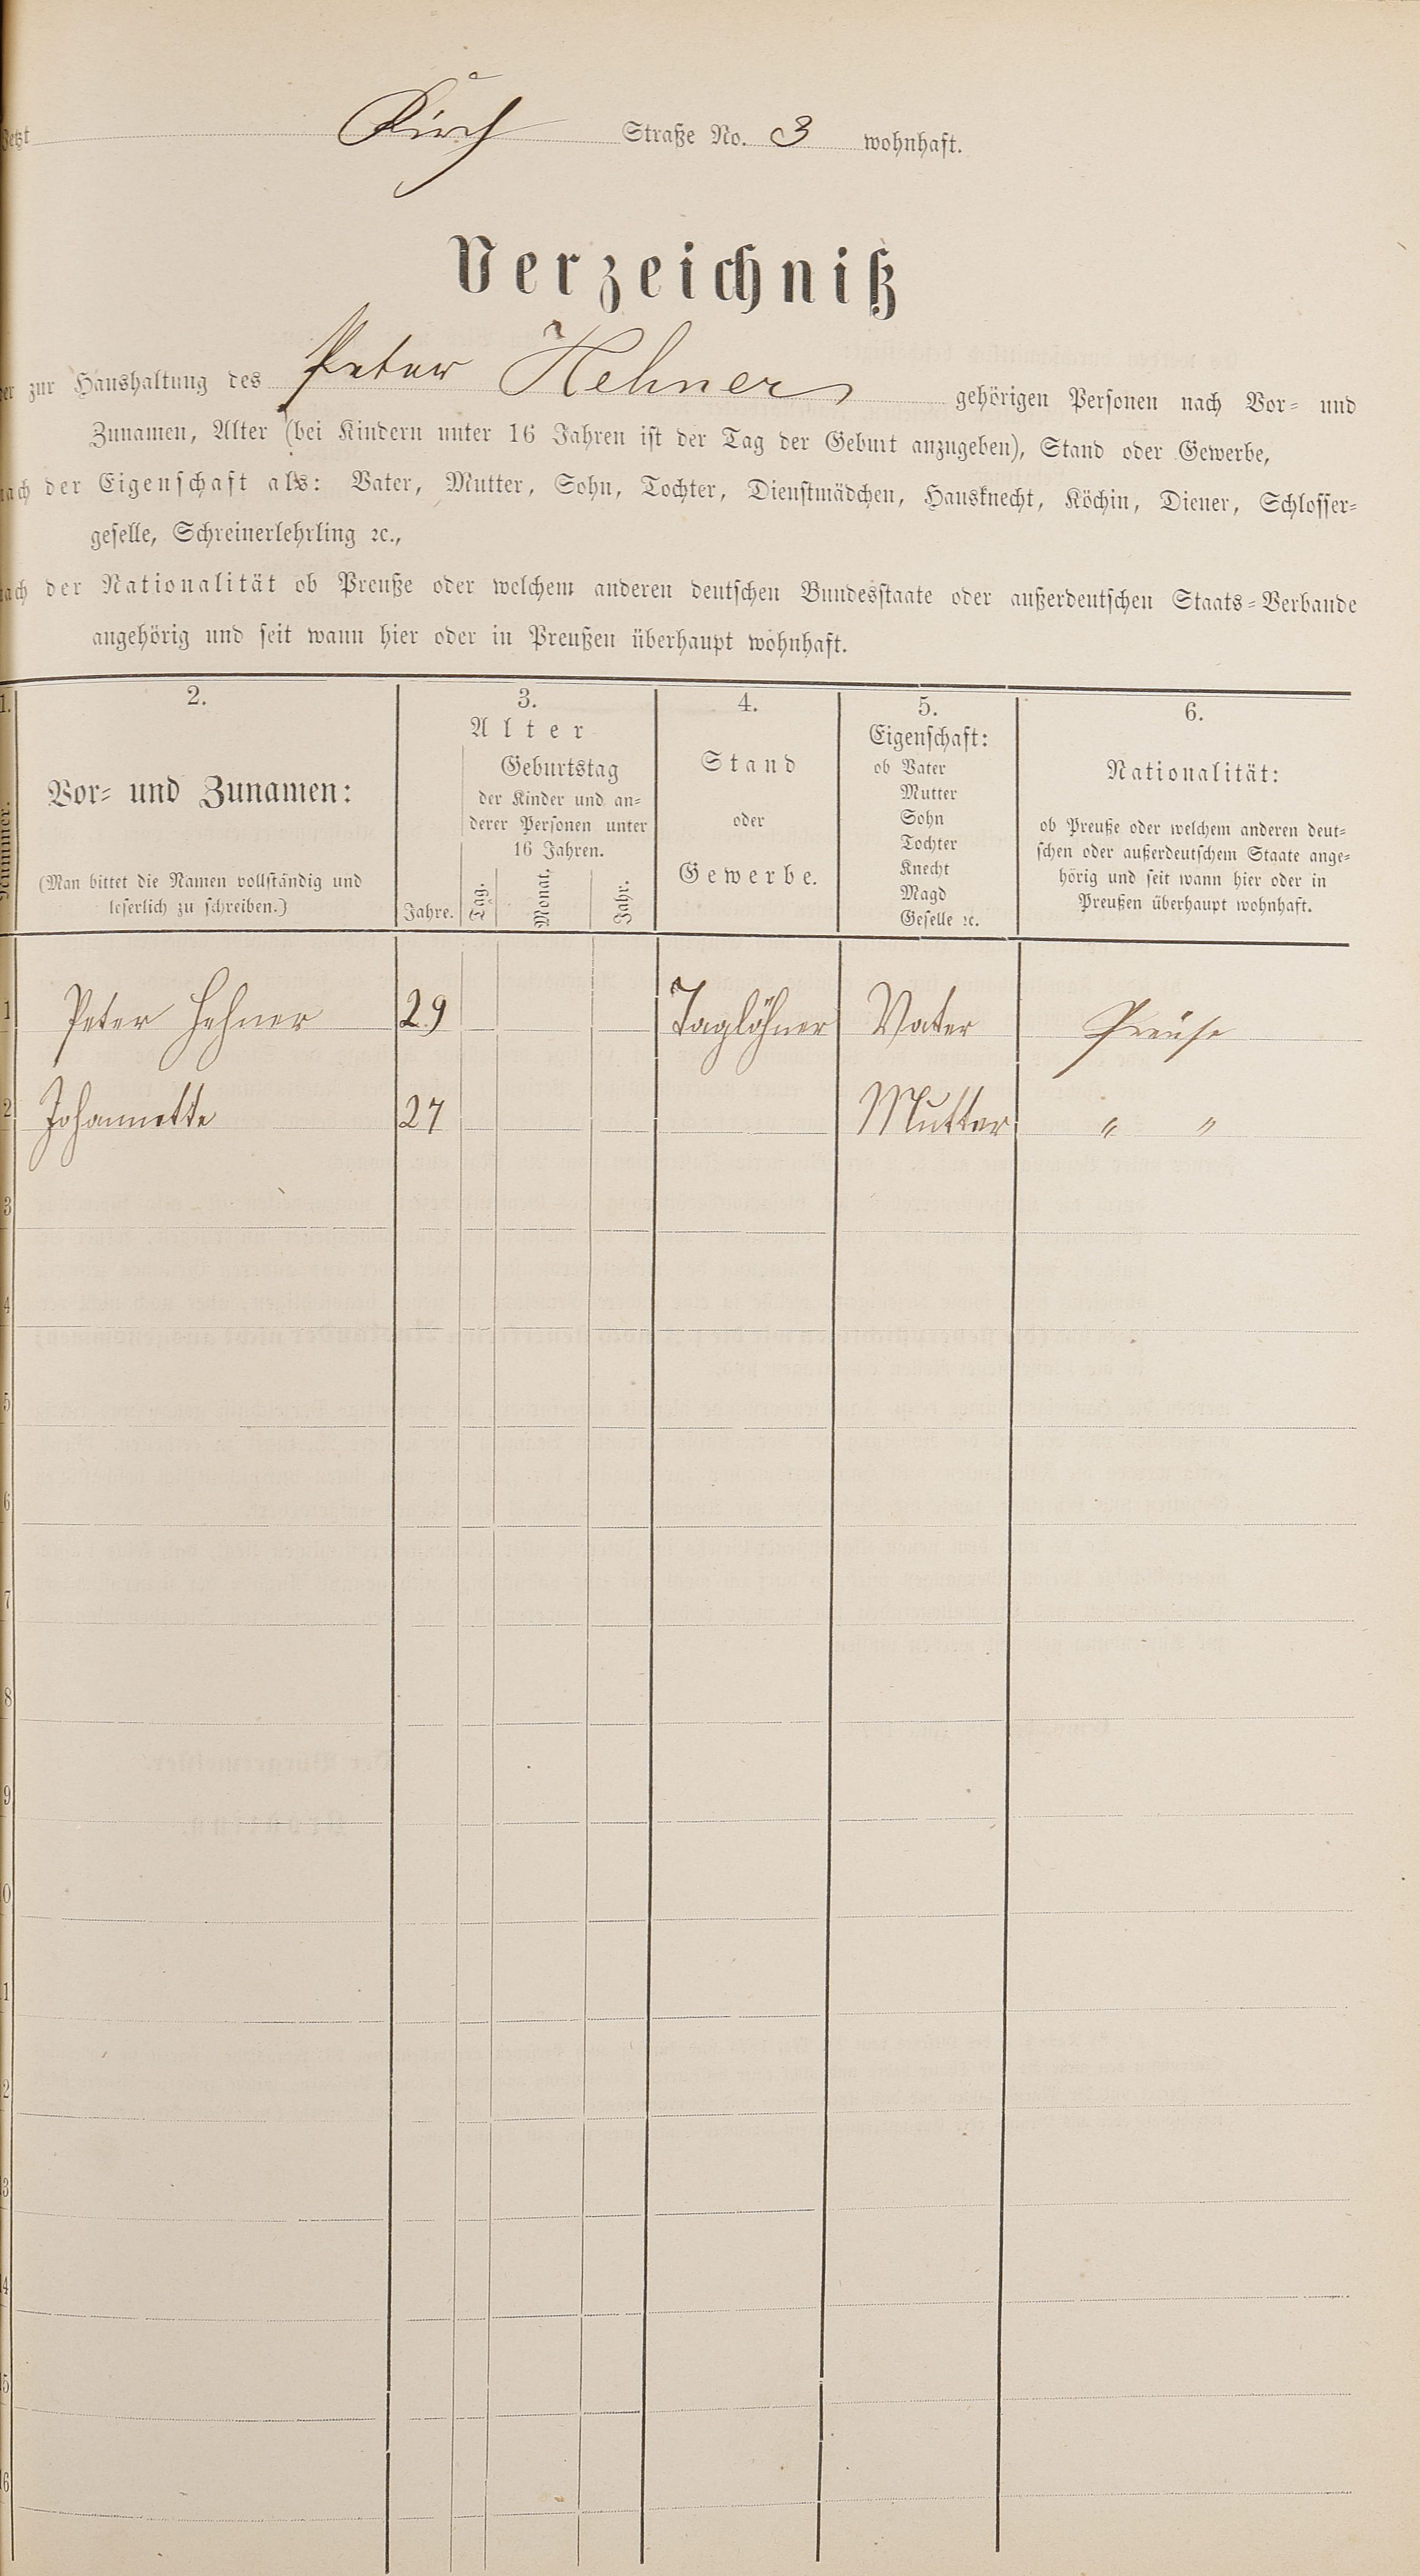 Jetzt Kirch Straße No. 3 wohnhaft.
Verzeichniß
der zur Haushaltung des Peter Hehner gehörigen Personen nach Vor- und
Zunamen, Alter (bei Kindern unter 16 Jahren ist der Tag der Geburt anzugeben), Stand oder Gewerbe,
nach der Eigenschaft als: Vater, Mutter, Sohn, Tochter, Dienstmädchen, Hausknecht, Köchin, Diener, Schlosser-
geselle, Schreinerlehrling ꝛc.,
nach der Nationalität ob Preuße oder welchem anderen deutschen Bundesstaate oder außerdeutschen Staats-Verbande
angehörig und seit wann hier oder in Preußen überhaupt wohnhaft.
1. 2. 3. 4. 5. 6.
Nummer.
Vor- und Zunamen:
(Man bittet die Namen vollständig und
leserlich zu schreiben.)
Alter
Geburtstag
der Kinder und an-
derer Personen unter
16 Jahren.
Jahre. Tag. Monat. Jahr.
Stand
oder
Gewerbe.
Eigenschaft:
ob Vater
Mutter
Sohn
Tochter
Knecht
Magd
Geselle ꝛc.
Nationalität:
ob Preuße oder welchem anderen deut-
schen oder außerdeutschem Staate ange-
hörig und seit wann hier oder in
Preußen überhaupt wohnhaft.
1 Peter Hehner 29 Taglöhner Vater Preuße
2 Johannette 27 Mutter " "
3
4
5
6
7
8
9
0
1
2
3
4
5
6